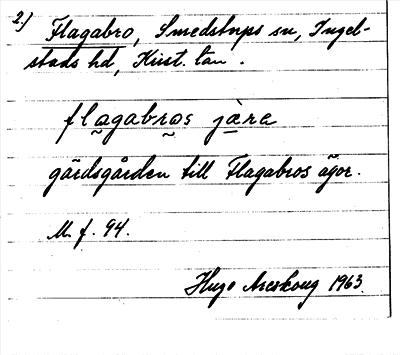 2.) Flagabro, Smedstorps sn, Ingel-
stads hd, Krist. län.
flagabros jära
gärdsgården till Flagabros ägor.
M. f. 94.
Hugo Areskoug 1963.